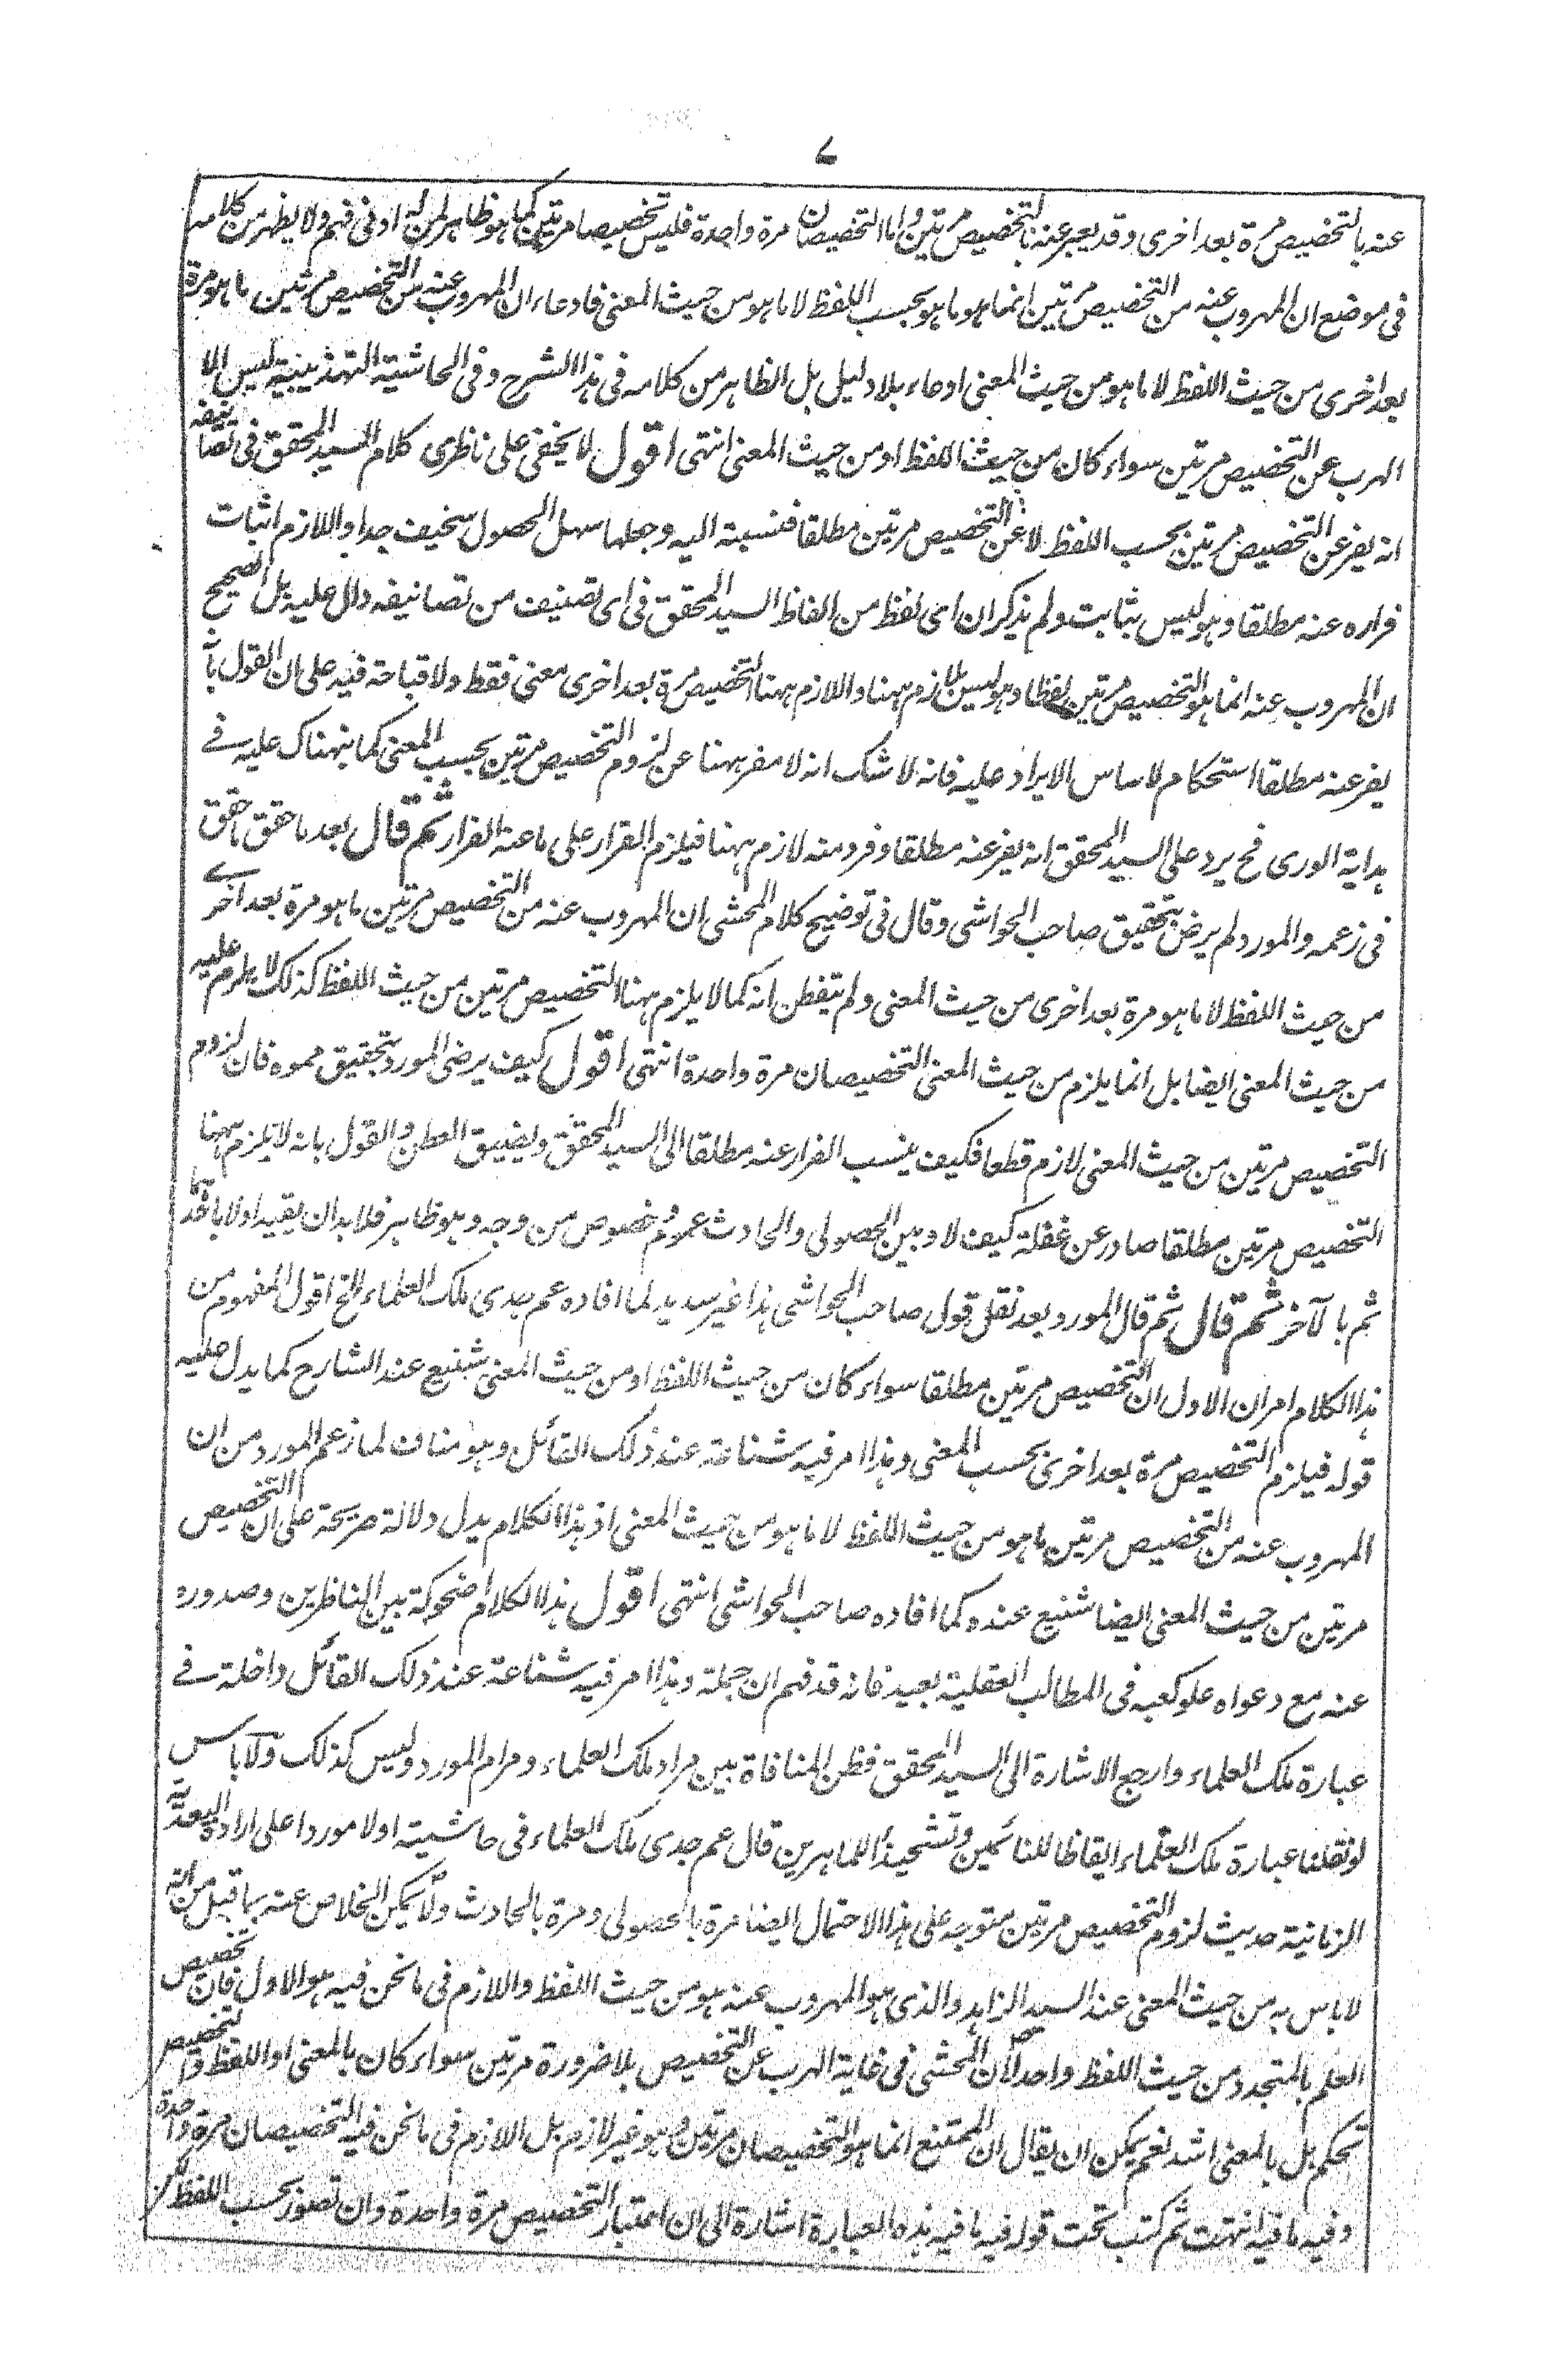 ٧
عنه بالتخصيص مرة بعد اخرى وقد يعبر عنه بالتخصيص مرتين واما التخصيصان مرة واحدة فليس تخصيصا مرتين كما هو ظاهر لمن له ادنى فهم ولا يظهر من كلامه
فى موضع ان المهروب عنه من التخصيص مرتين انما هو ما هو بحسب اللفظ لا ما هو من حيث المعنى فادعاء ان المهروب عنه من التخصيص مرتين ما هو مرة
بعد اخرى من حيث اللفظ لا ما هو من حيث المعنى ادعاء بلا دليل بل الظاهر من كلامه فى هذا الشرح وفى الحاشية التهذيبية ليس الا
الهرب عن التخصيص مرتين سواء كان من حيث اللفظ او من حيث المعنى انتهى اقول لا يخفى على ناظرى كلام السيد المحقق فى تصانيفه
انه يفر عن التخصيص مرتين بحسب اللفظ لا عن التخصيص مرتين مطلقا فنسبته اليه وجعلها سهل الحصول سخيف جدا واللازم اثبات
فراره عنه مطلقا وهو ليس بثابت ولم يذكر ان اى لفظ من الفاظ السيد المحقق فى اى تصنيف من تصانيفه دال عليه بل الصحيح
ان المهروب عنه انما هو التخصيص مرتين لفظا وهو ليس بلازم ههنا واللازم ههنا التخصيص مرة بعد اخرى معنى فقط ولا قباحة فيه على ان القول بانه
يفر عنه مطلقا استحكام لاساس الايراد عليه فانه لا شك انه لا مفر ههنا عن لزوم التخصيص مرتين بحسب المعنى كما نبهناك عليه فى
هداية الورى فح يرد على السيد المحقق انه يفر عنه مطلقا وفرو منه لازم ههنا فيلزم القرار على ما عنه الفرار ثم قال بعد ما حقق ما حقق
فى زعمه والمورد لم يرض بتحقيق صاحب الحواشى وقال فى توضيح كلام المحشى ان المهروب عنه من التخصيص مرتين ما هو مرة بعد اخرى
من حيث اللفظ لا ما هو مرة بعد اخرى من حيث المعنى ولم يتفطن انه كما لا يلزم ههنا التخصيص مرتين من حيث اللفظ كذلك لا يلزم عليه
من حيث المعنى ايضا بل انما يلزم من حيث المعنى التخصيصان مرة واحدة انتهى اقول كيف يرضى المورد بتحقيق مموه فان لزوم
التخصيص مرتين من حيث المعنى لازم قطعا فكيف ينسب الفرار عنه مطلقا الى السيد المحقق ويضيق العطن والقول بانه لا يلزم ههنا
التخصيص مرتين مطلقا صادر عن غفلة كيف لا وبين الحصولى والحادث عموم وخصوص من وجه وهو ظاهر فلا بد ان يقيد اولا باحدهما
ثم بالآخر ثم قال ثم قال المورد بعد نقل قول صاحب الحواشى هذا غير سديد لما افاده عم جدى ملك العلماء الخ اقول المفهوم من
هذا الكلام امران الاول ان التخصيص مرتين مطلقا سواء كان من حيث اللفظ او من حيث المعنى شنيع عند الشارح كما يدل عليه
قوله فيلزم التخصيص مرة بعد اخرى بحسب المعنى وهذا امر فيه شناعة عند ذلك القائل وهو مناف لما زعم المورد من ان
المهروب عنه من التخصيص مرتين ما هو من حيث اللفظ لا ما هو من حيث المعنى اذ هذا الكلام يدل دلالة صريحة على ان التخصيص
مرتين من حيث المعنى ايضا شنيع عنده كما افاده صاحب الحواشى انتهى اقول هذا الكلام اضحوكة بين المناظرين وصدوره
عنه مع دعواه علو كعبه فى المطالب العقلية بعيد فانه قد فهم ان جملة وهذا امر فيه شناعة عند ذلك القائل داخلة فى
عبارة ملك العلماء وارجع الاشارة الى السيد المحقق فظن المنافاة بين مراد ملك العلماء ومرام المورد وليس كذلك ولا باس
لو نقلنا عبارة ملك العلماء ايقاظا للنائمين وتشحيذا للماهرين قال عم جدى ملك العلماء فى حاشيته اولا موردا على ارادة البعدية
الزمانية حديث لزوم التخصيص مرتين متوجه على هذا الاحتمال ايضا مرة بالحصولى ومرة بالحادث ولا يمكن الخلاص عنه بما قيل من انه
لا باس به من حيث المعنى عند السيد الزاهد والذى هو المهروب عنه هو من حيث اللفظ واللازم فى ما نحن فيه هو الاول فان تخصيص
العلم بالمتجدد من حيث اللفظ واحد لان المحشى فى غاية الهرب عن التخصيص بلا ضرورة مرتين سواء كان بالمعنى او اللفظ والتخصيص
تحكم بل بالمعنى اشد نعم يمكن ان يقال ان الممتنع انما هو التخصيصان مرتين وهو غير لازم بل اللازم فى ما نحن فيه التخصيصان مرة واحدة
وفيه ما فيه انتهت ثم كتب تحت قوله فيه ما فيه هذه العبارة اشارة الى ان اعتبار التخصيص مرة واحدة وان تصور بحسب اللفظ